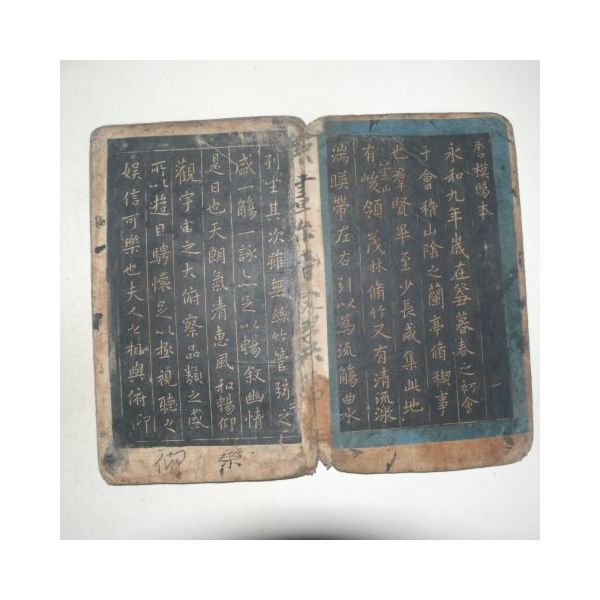 唐模賜本
永和九年歲在癸丑暮春之初會
于會稽山陰之蘭亭脩稧事
也羣賢畢至少長咸集此地
有崇山峻領茂林脩竹又有清流激
湍暎帶左右引以為流觴曲水
列坐其次雖無絲竹管弦之
盛一觴一詠亦足以暢叙幽情
是日也天朗氣清惠風和暢仰
觀宇宙之大俯察品類之盛
所以遊目騁懷足以極視聽之
娛信可樂也夫人之相與俯仰
樂
仰